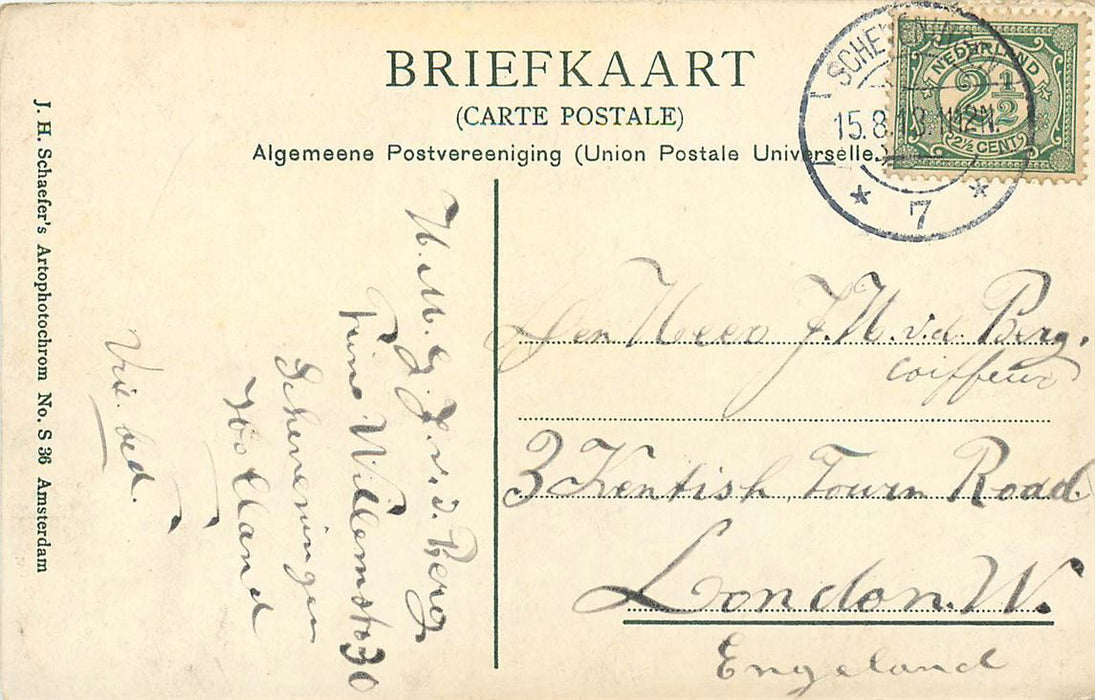 BRIEFKAART
(CARTE POSTALE)
Algemeene Postvereeniging (Union Postale Universelle)
NEDERLAND
2½
2½ CENT 2½
SCHEVENINGEN
15.8.13. N12N.
* 7 *
J. H. Schaefer's Artophotochrom No. S 36 Amsterdam
G. J. v. d. Berg
Willemstr 30
Scheveningen
Holland
Vis. bed.
Den Heer J. H. v. d. Berg.
coiffeur
3 Kentish Town Road.
London. W.
Engeland